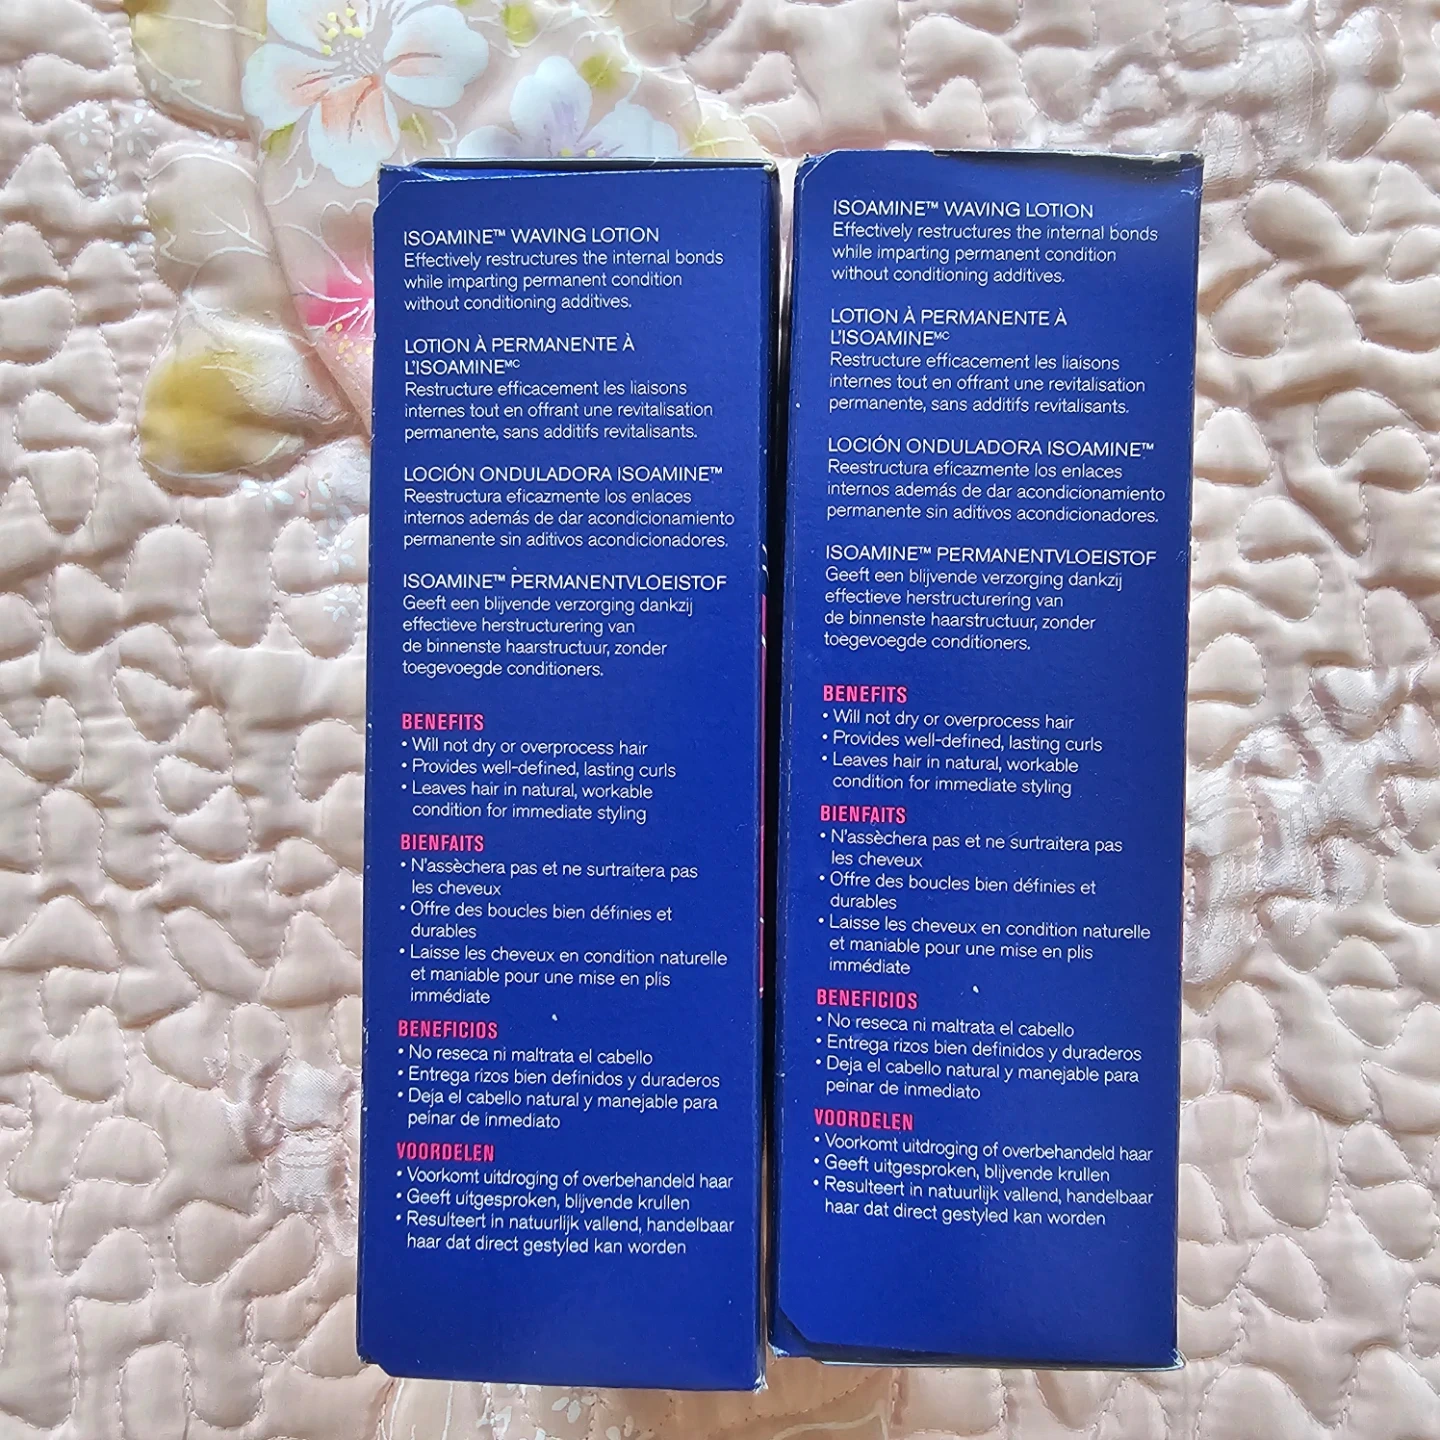 ISOAMINE™ WAVING LOTION
Effectively restructures the internal bonds
while imparting permanent condition
without conditioning additives.
LOTION À PERMANENTE À
L'ISOAMINEᴹᶜ
Restructure efficacement les liaisons
internes tout en offrant une revitalisation
permanente, sans additifs revitalisants.
LOCIÓN ONDULADORA ISOAMINE™
Reestructura eficazmente los enlaces
internos además de dar acondicionamiento
permanente sin aditivos acondicionadores.
ISOAMINE™ PERMANENTVLOEISTOF
Geeft een blijvende verzorging dankzij
effectieve herstructurering van
de binnenste haarstructuur, zonder
toegevoegde conditioners.
BENEFITS
• Will not dry or overprocess hair
• Provides well-defined, lasting curls
• Leaves hair in natural, workable
condition for immediate styling
BIENFAITS
• N'assèchera pas et ne surtraitera pas
les cheveux
• Offre des boucles bien définies et
durables
• Laisse les cheveux en condition naturelle
et maniable pour une mise en plis
immédiate
BENEFICIOS
• No reseca ni maltrata el cabello
• Entrega rizos bien definidos y duraderos
• Deja el cabello natural y manejable para
peinar de inmediato
VOORDELEN
• Voorkomt uitdroging of overbehandeld haar
• Geeft uitgesproken, blijvende krullen
• Resulteert in natuurlijk vallend, handelbaar
haar dat direct gestyled kan worden
ISOAMINE™ WAVING LOTION
Effectively restructures the internal bonds
while imparting permanent condition
without conditioning additives.
LOTION À PERMANENTE À
L'ISOAMINEᴹᶜ
Restructure efficacement les liaisons
internes tout en offrant une revitalisation
permanente, sans additifs revitalisants.
LOCIÓN ONDULADORA ISOAMINE™
Reestructura eficazmente los enlaces
internos además de dar acondicionamiento
permanente sin aditivos acondicionadores.
ISOAMINE™ PERMANENTVLOEISTOF
Geeft een blijvende verzorging dankzij
effectieve herstructurering van
de binnenste haarstructuur, zonder
toegevoegde conditioners.
BENEFITS
• Will not dry or overprocess hair
• Provides well-defined, lasting curls
• Leaves hair in natural, workable
condition for immediate styling
BIENFAITS
• N'assèchera pas et ne surtraitera pas
les cheveux
• Offre des boucles bien définies et
durables
• Laisse les cheveux en condition naturelle
et maniable pour une mise en plis
immédiate
BENEFICIOS
• No reseca ni maltrata el cabello
• Entrega rizos bien definidos y duraderos
• Deja el cabello natural y manejable para
peinar de inmediato
VOORDELEN
• Voorkomt uitdroging of overbehandeld haar
• Geeft uitgesproken, blijvende krullen
• Resulteert in natuurlijk vallend, handelbaar
haar dat direct gestyled kan worden